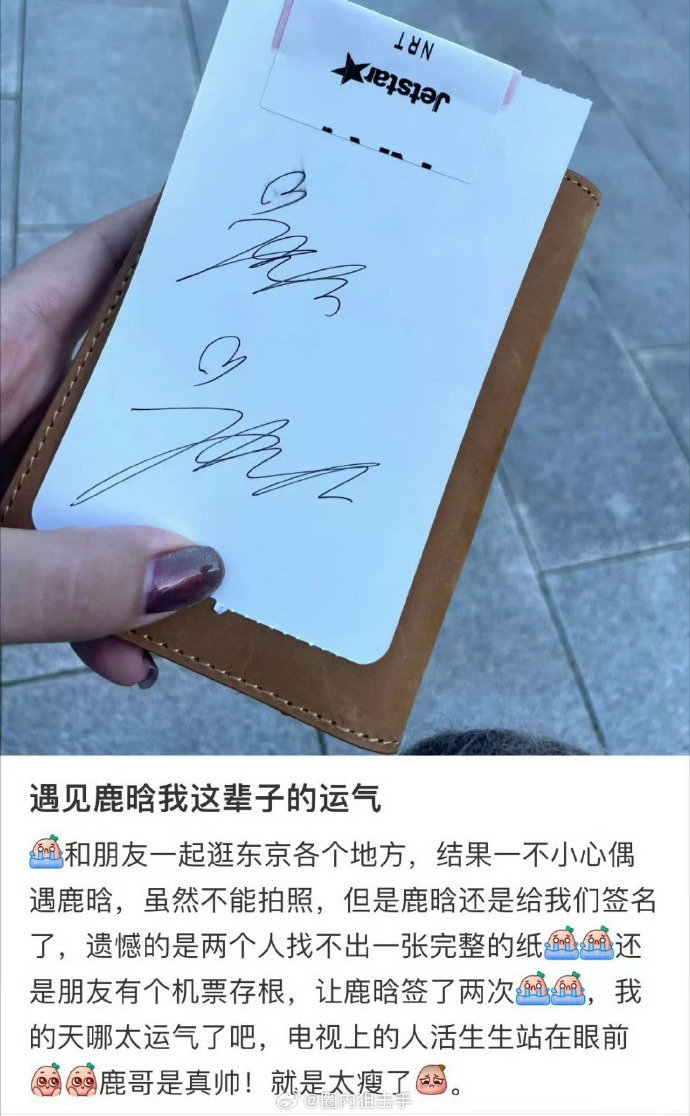 NRT
Jetstar
遇见鹿晗我这辈子的运气
和朋友一起逛东京各个地方，结果一不小心偶
遇鹿晗，虽然不能拍照，但是鹿晗还是给我们签名
了，遗憾的是两个人找不出一张完整的纸还
是朋友有个机票存根，让鹿晗签了两次，我
的天哪太运气了吧，电视上的人活生生站在眼前
鹿哥是真帅！就是太瘦了。
@圈内狙击手